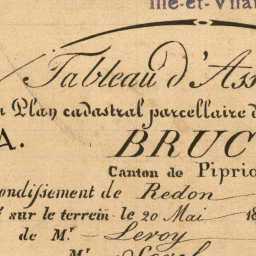 Ille-et-Vilai
Tableau d'Ass
Plan cadastral parcellaire d
A.
BRUC
Canton de Pipria
ondissement de Redon
sur le terrein le 20 Mai 18
de Mr. Leroy
Mr.